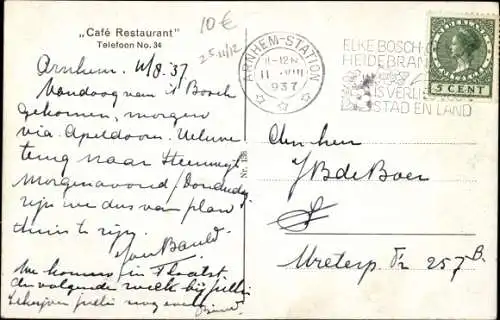 „Café Restaurant"
Telefoon No. 34
10 €
25-11/12
ARNHEM-STATION
11-12 N
11 VIII
1937
ELKE BOSCH- O
HEIDEBRAN
IS VERLIES VOOR
STAD EN LAND
NEDERLAND
5 CENT
Nr. 138
Arnhem. 11/8.'37.
Vandaag van 's Bosch
gekomen, morgen
via Apeldoorn. Veluwe
terug naar
Morgenavond / Donderdag
zijn we dus van plan
thuis te zijn.
We komen in
de volgende week bij jullie
schrijven jullie nog even
Aan den heer
J B de Boer
Ureterp Nr 257 B.